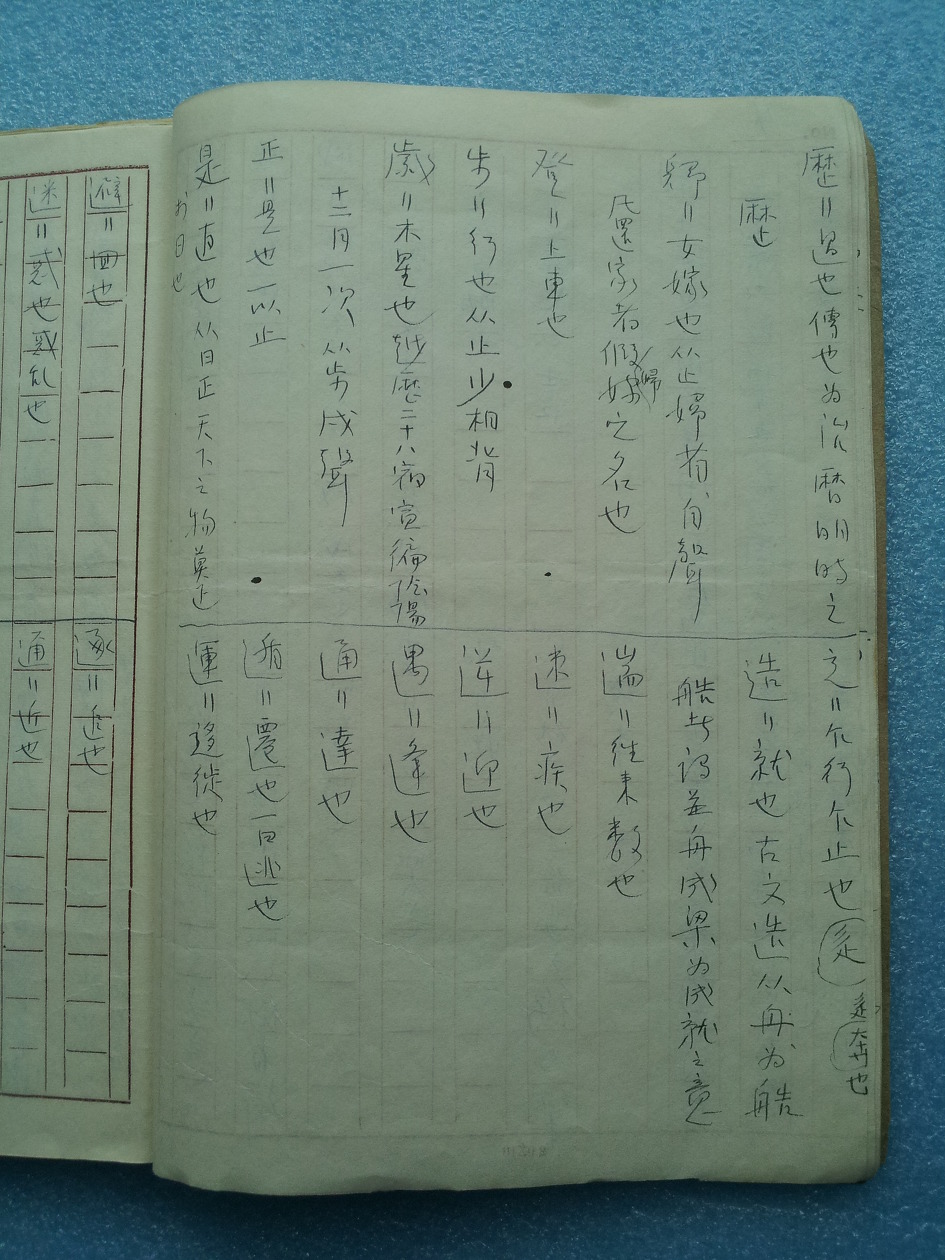 歷＝過也傳也为治曆明時之
歴
歸＝女嫁也从止婦省自聲
凡還家者假婦歸之名也
登＝上車也
步＝行也从止少相背
歲＝木星也越歷二十八宿宣徧陰陽
十二月一次从步戌聲
正＝是也一以止
是＝直也从日正天下之物莫正
於日也
辵＝乍行乍止也 辵
辵奔也
造＝就也古文造从舟为艁
艁者謂並舟成梁为成就之意
遄＝往来數也
速＝疾也
逆＝迎也
遇＝逢也
通＝達也
遁＝遷也一曰逃也
運＝迻徙也
避＝回也
迷＝惑也惑乱也
逐＝追也
逼＝近也